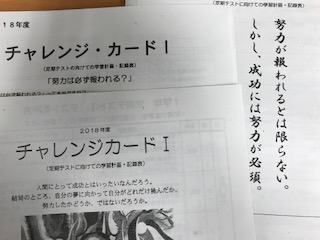 18年度
チャレンジ・カードⅠ
(定期テストの向けての学習計画・記録表)
「努力は必ず報われる?」
努力が報われるとは限らない。
しかし、成功には努力が必須。
2018年度
チャレンジカードⅠ
(定期テストに向けての学習計画・記録表)
人間にとって成功とはいったいなんだろう。
結局のところ、自分の夢に向かって自分がどれだけ挑んだか、
努力したかどうか、ではないだろうか。